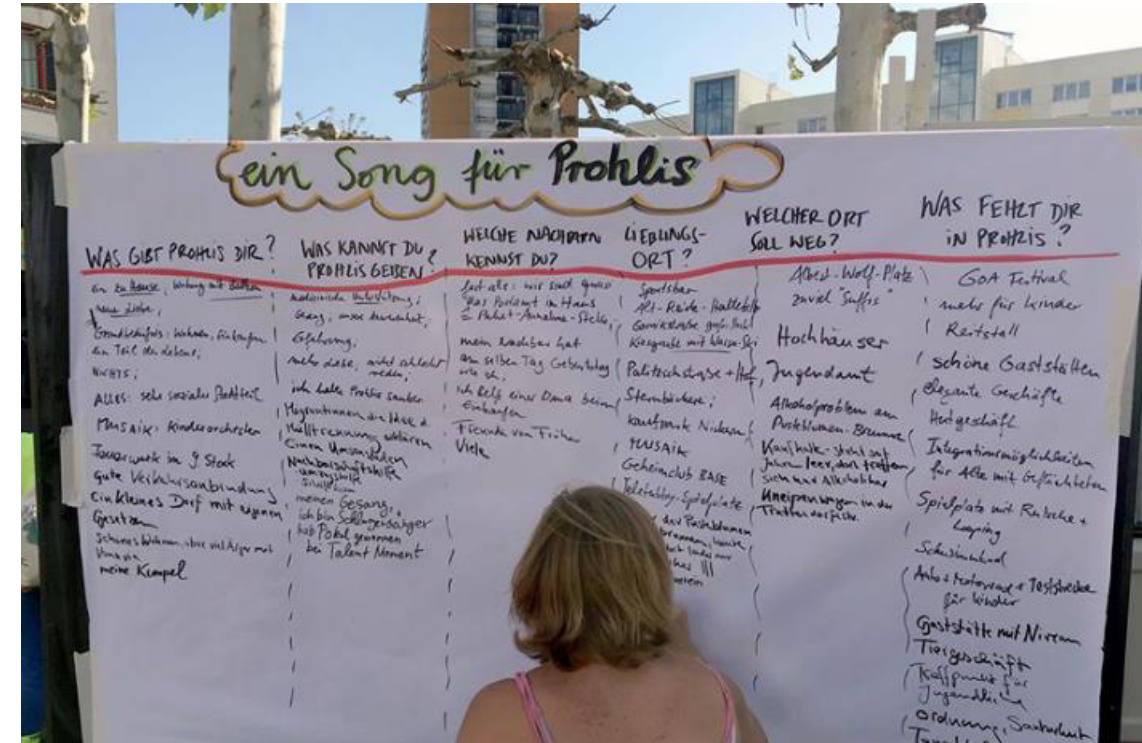 ein Song für Prohlis
WAS GIBT PROHLIS DIR?
ein zu Hause,
neue Liebe,
Grundbedürfnis: Wohnen, Einkaufen
ein Teil des Lebens;
NICHTS;
ALLES: sehr sozialer Stadtteil
MUSAIK: Kinderorchester
Feuerwerk im 9. Stock
Gute Verkehrsanbindung
Ein kleines Dorf mit eigenen
Gesetzen
Schönes Wohnen, aber viel Ärger mit
meine Kumpel
WAS KANNST DU
PROHLIS GEBEN?
medizinische Unterstützung;
Erfahrung;
mehr Liebe, nicht schlecht
reden;
ich halte Prohlis sauber
Migrantinnen die Idee d.
Mülltrennung erklären
Einen Umsonstladen
Nachbarschaftshilfe
meinen Gesang,
ich bin Schlagersänger
hab Pokal gewonnen
bei Talent Moment
WELCHE NACHBARN
KENNST DU?
fast alle: wir sind quasi
das Postamt im Haus
= Paket-Annahme-Stelle;
mein Nachbar hat
am selben Tag Geburtstag
wie ich;
ich helf einer Oma beim
Einkaufen
Freunde von Früher
Viele
LIEBLINGS-
ORT?
Sportsbar
Kiesgrube mit Wasser-Ski
Palitzschstraße + Hof,
Sternbäckerei;
Kaufpark Nickern
MUSAIK
Geheimclub BASE
Teletubby-Spielplatz
der Pusteblumen
WELCHER ORT
SOLL WEG?
Albert-Wolf-Platz
zuviel "Suffis"
Hochhäuser
Jugendamt
Alkoholproblem am
Pusteblumen-Brunnen
Kaufhalle - steht seit
Jahren leer, dort treffen
sich nur Alkoholiker
Kneipenwagen in der
WAS FEHLT DIR
IN PROHLIS?
GOA Festival
mehr für Kinder
Reitstall
schöne Gaststätten
elegante Geschäfte
Hutgeschäft
Integrationsmöglichkeiten
für Alte mit Geflüchteten
Spielplatz mit Rutsche +
Looping
Schwimmbad
Auto + Motorrad + Teststrecke
für Kinder
Gaststätte mit Niveau
Tiergeschäft
Treffpunkt für
Jugendliche
Ordnung, Sauberkeit